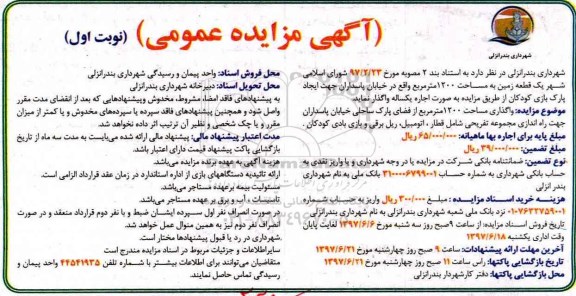 (آگهی مزایده عمومی)
(نوبت اول)
شهرداری بندرانزلی
شهرداری بندرانزلی در نظر دارد به استناد بند ۲ مصوبه مورخ ۹۷/۲/۲۳ شورای اسلامی
شهر یک قطعه زمین به مساحت ۱۲۰۰مترمربع واقع در خیابان پاسداران جهت ایجاد
پارک بازی کودکان از طریق مزایده به صورت اجاره یکساله واگذار نماید.
موضوع مزایده: واگذاری مساحت ۱۲۰۰مترمربع از فضای پارک ساحلی خیابان پاسداران
جهت راه اندازی مجموعه تفریحی شامل قطار، اتومبیل، ریل برقی و بازی بادی کودکان
مبلغ پایه برای اجاره بها ماهیانه: ۶۵/۰۰۰/۰۰۰ ریال
مبلغ تضمین: ۳۹/۰۰۰/۰۰۰ ریال
نوع تضمین: ضمانتنامه بانکی شرکت در مزایده یا در وجه شهرداری و یا واریز نقدی به
حساب بانکی شهرداری به شماره حساب ۳۱۰۰۰۰۶۷۹۹۰۰۱ بانک ملی به نام شهرداری
بندر انزلی
هزینه خرید اسناد مزایده: مبلغ ۳۰۰/۰۰۰ ریال واریز به حساب شماره
۰۱۰۷۶۳۲۷۵۹۰۰۱ نزد بانک ملی شعبه شهرداری بندرانزلی به نام شهرداری بندرانزلی
تاریخ فروش اسناد مزایده: از ساعت ۹ صبح روز سه شنبه مورخ ۱۳۹۷/۶/۶ لغایت پایان
وقت اداری یکشنبه ۱۳۹۷/۶/۱۸
آخرین مهلت ارائه پیشنهادات: ساعت ۹ صبح روز چهارشنبه مورخ ۱۳۹۷/۶/۲۱
تاریخ بازگشایی پاکتها: راس ساعت ۱۱ صبح روز چهارشنبه مورخ ۱۳۹۷/۶/۲۱
محل بازگشایی پاکتها: دفتر کار شهردار بندرانزلی
محل فروش اسناد: واحد پیمان و رسیدگی شهرداری بندرانزلی
محل تحویل اسناد: دبیرخانه شهرداری بندرانزلی
به پیشنهادهای فاقد امضا، مشروط، مخدوش و پیشنهادهایی که بعد از انقضای مدت مقرر
واصل شود و همچنین پیشنهادهای فاقد سپرده یا سپرده‌های مخدوش و یا کمتر از میزان
مقرر و یا چک شخصی و نظیر آن ترتیب اثر داده نخواهد شد.
مدت اعتبار پیشنهاد مالی: پیشنهاد مالی ارائه شده می‌بایست به مدت سه ماه از تاریخ
بازگشایی پاکت پیشنهاد قیمت دارای اعتبار باشد.
هزینه آگهی به عهده برنده مزایده می‌باشد.
ارائه تائیدیه دستگاههای بازی از اداره استاندارد در زمان عقد قرارداد الزامی است.
مسئولیت بیمه برعهده مستاجر می‌باشد.
تاسیسات، آب و برق بر عهده مستاجر می‌باشد.
در صورت انصراف نفر اول سپرده ایشان ضبط و با نفر دوم قرارداد منعقد و در صورت
انصراف نفر دوم نیز به همین منوال عمل خواهد شد.
شهرداری در رد یا قبول پیشنهادها مختار است.
سایر اطلاعات و جزئیات مربوط در اسناد مزایده مندرج است
متقاضیان می‌توانند برای اطلاعات بیشتر با شماره تلفن ۴۴۵۴۱۹۳۵ واحد پیمان و
رسیدگی تماس حاصل نمایند.